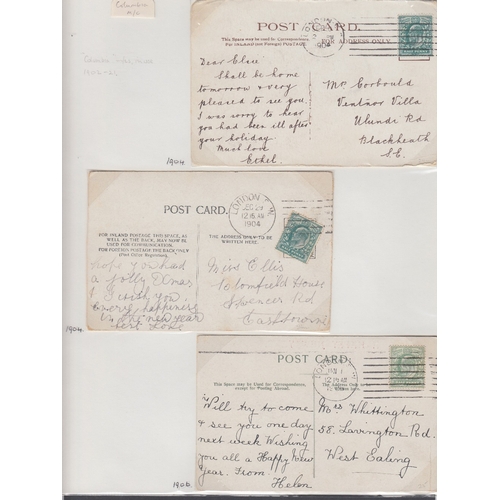 Columbia
POST CARD.
This Space may be used for Correspondence
For INLAND (not Foreign) POSTAGE.
FOR ADDRESS ONLY.
LONDON
1904
Dear Elsie
Shall be home
tomorrow & very
pleased to see you.
I was sorry to hear
you had been ill after
your holiday.
Much love
Ethel
Mr Corbould
Ventnor Villa
Ulundi Rd
Blackheath
S.E.
1904
POST CARD.
FOR INLAND POSTAGE THIS SPACE, AS
WELL AS THE BACK, MAY NOW BE
USED FOR COMMUNICATION.
FOR FOREIGN POSTAGE THE BACK ONLY
(Post Office Regulation).
THE ADDRESS ONLY TO BE
WRITTEN HERE.
LONDON S.W.
12.15 AM
1904
hope you had
a jolly Xmas
I wish you
every happiness
in the new year
best love
Miss Ellis
Blomfield House
Spencer Rd
Eastbourne
1904
POST CARD.
This Space may be Used for Correspondence,
except for Posting Abroad.
The Address Only to be
LONDON
12.15 AM
Will try to come
& see you one day
next week Wishing
you all a Happy New
Year. From
Helen
Mrs Whittington
58. Lavington Rd.
West Ealing
1906